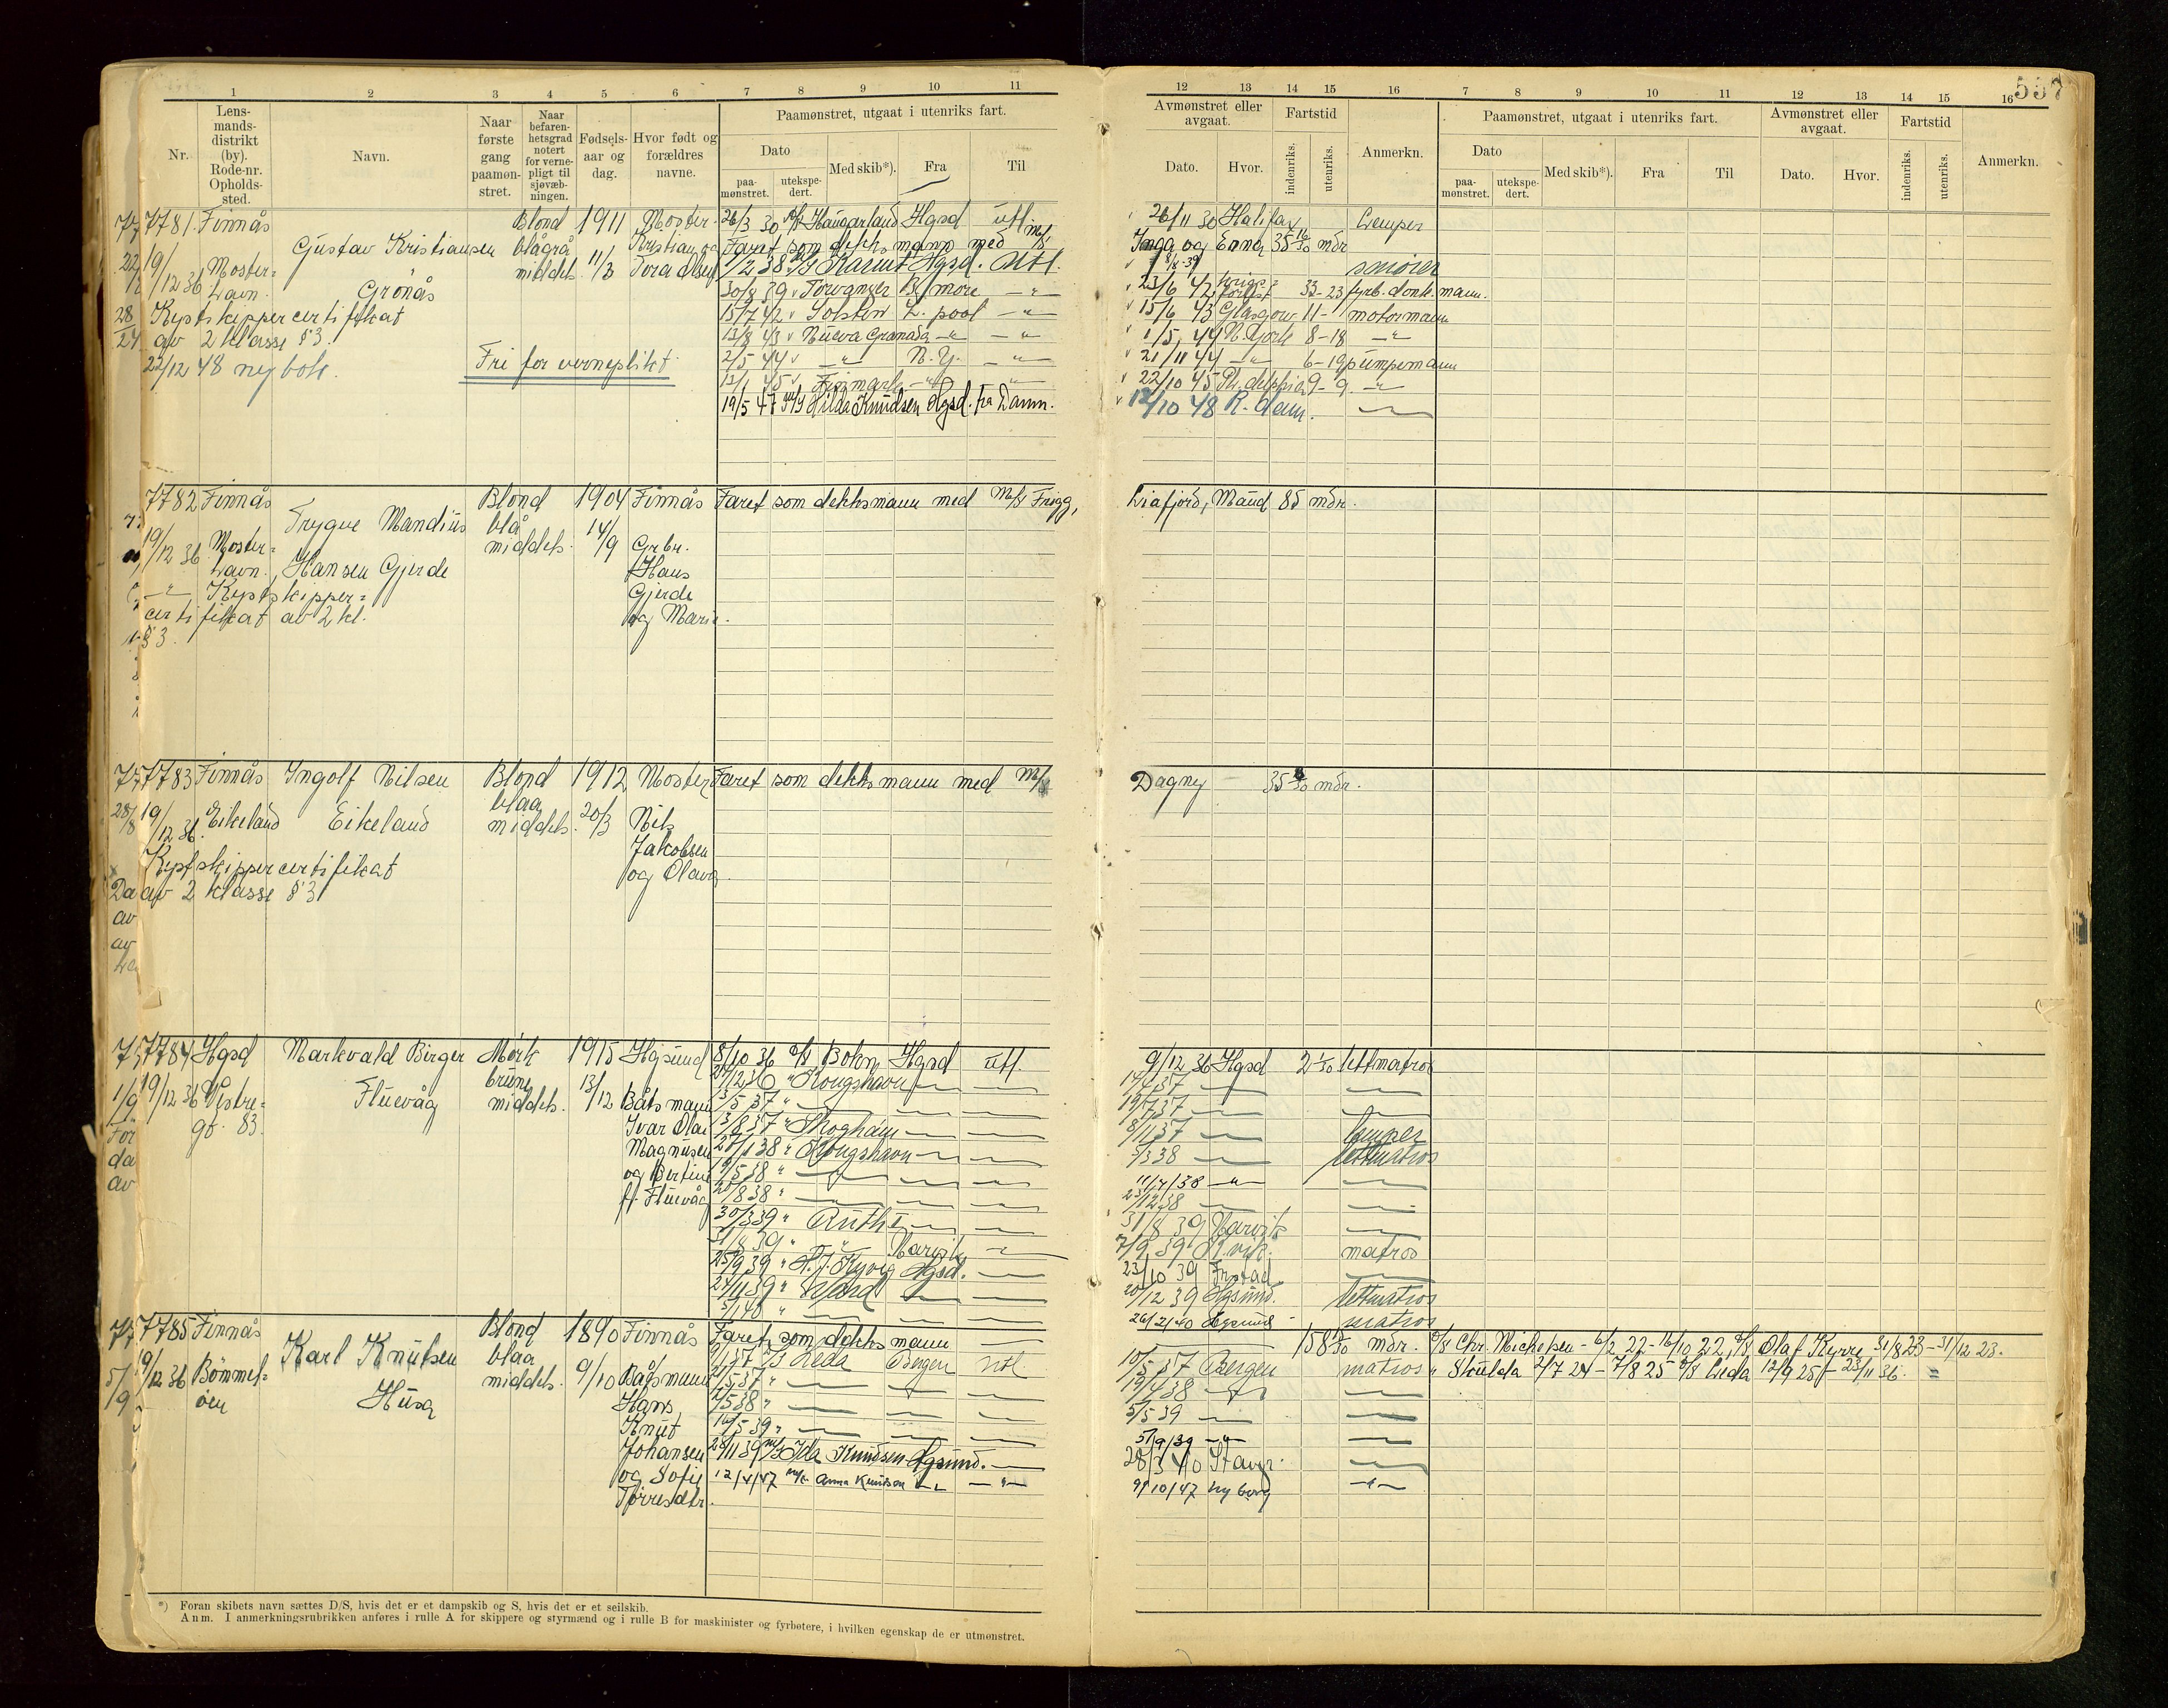 557
1 2 3 4 5 6 7 8 9 10 11
Nr.
Lens-mands-distrikt (by). Rode-nr. Opholds-sted.
Navn.
Naar første gang paamøn-stret.
Naar befaren-hetsgrad notert for verne-pligt til sjøvæb-ningen.
Fødsels-aar og dag.
Hvor født og forældres navne.
Paamønstret, utgaat i utenriks fart.
Dato
paa-mønstret.
utekspe-dert.
Med skib*).
Fra
Til
12 13 14 15 16 7 8 9 10 11 12 13 14 15 16
Avmønstret eller avgaat.
Dato.
Hvor.
Fartstid
indenriks.
utenriks.
Anmerkn.
Paamønstret, utgaat i utenriks fart.
Dato
paa-mønstret.
utekspe-dert.
Med skib*).
Fra
Til
Avmønstret eller avgaat.
Dato.
Hvor.
Fartstid
indenriks.
utenriks.
Anmerkn.
7781. Finnås
19/12 36 Moster-
havn.
Gustav Kristiansen
Grönås
Blond
blågrå
middels
1911
11/3
Moster.
Kristian og
Tora Olsen
Kystskippercertifikat
av 2 klasse § 3.
22/12 48 ny bok.
Fri for verneplikt
26/3 30 Haugarland Hgsd utl.
Faret som dekksmann med m/s
1/2 38 Karmt Hgsd. Utl.
30/8 39 Torvanger B/more -"-
15/7 42 Solstein L. pool -"-
13/8 43 Nueva Granada -"- -"-
2/5 44 -"- N.Y. -"-
13/1 45 Finmark -"- -"-
19/5 47 M/S Hilda Knudsen Hgsd. fra Damm.
26/11 30 Halifax Lemper
Inga og Enna 35 16/30 mdr
8/8-39 smører
23/6 42 33-23 fyrb. donk. mann.
15/6 43 Glasgow 11- motormann
1/5, 44 N. York 8-18 -"-
21/11 44 -"- 6-19 pumpemann
22/10 45 Ph. delphia 9-9. -"-
12/10 48 R. dam.
7782 Finnås
19/12 36 Moster-
havn.
Trygve Mandius
Hansen Gjerde
Blond
blå
middels.
1904
14/9
Finnås
Grbr.
Hans
Gjerde
og Marie.
-"- Kystskipper-
certifikat av 2 kl.
§ 3.
Faret som dekksmann med M/s Frigg,
Liafjord, Maud 85 mdr.
7783 Finnås
19/12 36. Eikeland
Ingolf Nilsen
Eikeland
Blond
blaa
middels.
1912
20/3
Moster
Nils
Jakobsen
og Olava
Kystskippercertifikat
av 2 klasse § 3
Faret som dekksmann med M/s
Dagny 35 8/30 mdr.
7784 Hgsd
19/12 36 Vestre-
gt. 83.
Markvald Birger
Fluevåg
Mørk
brune
middels.
1915
13/12
Hgsund
Båtsmann
Ivar Olai
Magnusen
og Bertine
f. Fluevåg
8/10 36 Bokn Hgsd utl.
Kongshavn
3/5 37 "
3/8 37 " Skoghaug
27/1 38 " Kongshavn
19/5 38 "
20/8 38 "
30/3 39 " Ruth I
31/8 39 " -"- Narvik
25/9 39 " H. J. Kyvig Hgsd.
27/11 39 " Vard
5/1 40 "
9/12 36 Hgsd 2 1/30 lettmatros
19/7 37
8/11 37 lemper
lettmatros
11/7/38 -"-
23/12 38
31/8 39 Narvik
7/9 39 N.vik. matros
23/10 39 Fr.stad
20/12 39 Hgsund. lettmatros
26/2/40 Hgsund matros
7785 Finnås
19/12 36 Bømmel-
øen
Karl Knutsen
Husa
Blond
blaa
middels.
1890
9/10
Finnås
Båtsmann
Hans
Knut
Johansen
og Sofij
Torresdtr.
Faret som dekksmann
9/1 37 Leda Bergen utl.
21/5 37 "
1/5 38 "
16/5 39 "
28/11 39 M/S Ida Knudsen Hgsund.
12/4/47 M/s Anna Knudsen -"-
158 mdr. D/S Chr. Michelsen - 6/2 22 - 16/10 22, D/S Olaf Kyrre 31/8 23 - 31/12 23.
10/5 37 Bergen matros " Skulda 2/7 24 - 7/8 25 D/S Leda 12/9 25 - 23/11 36.
19/4 38
5/5 39
5/9/39 -"-
28/3 40 Stavgr.
9/10/47 Nyborg -"-
*) Foran skibets navn sættes D/S, hvis det er et dampskib og S, hvis det er et seilskib.
Anm. I anmerkningsrubrikken anføres i rulle A for skippere og styrmænd og i rulle B for maskinister og fyrbøtere, i hvilken egenskap de er utmønstret.